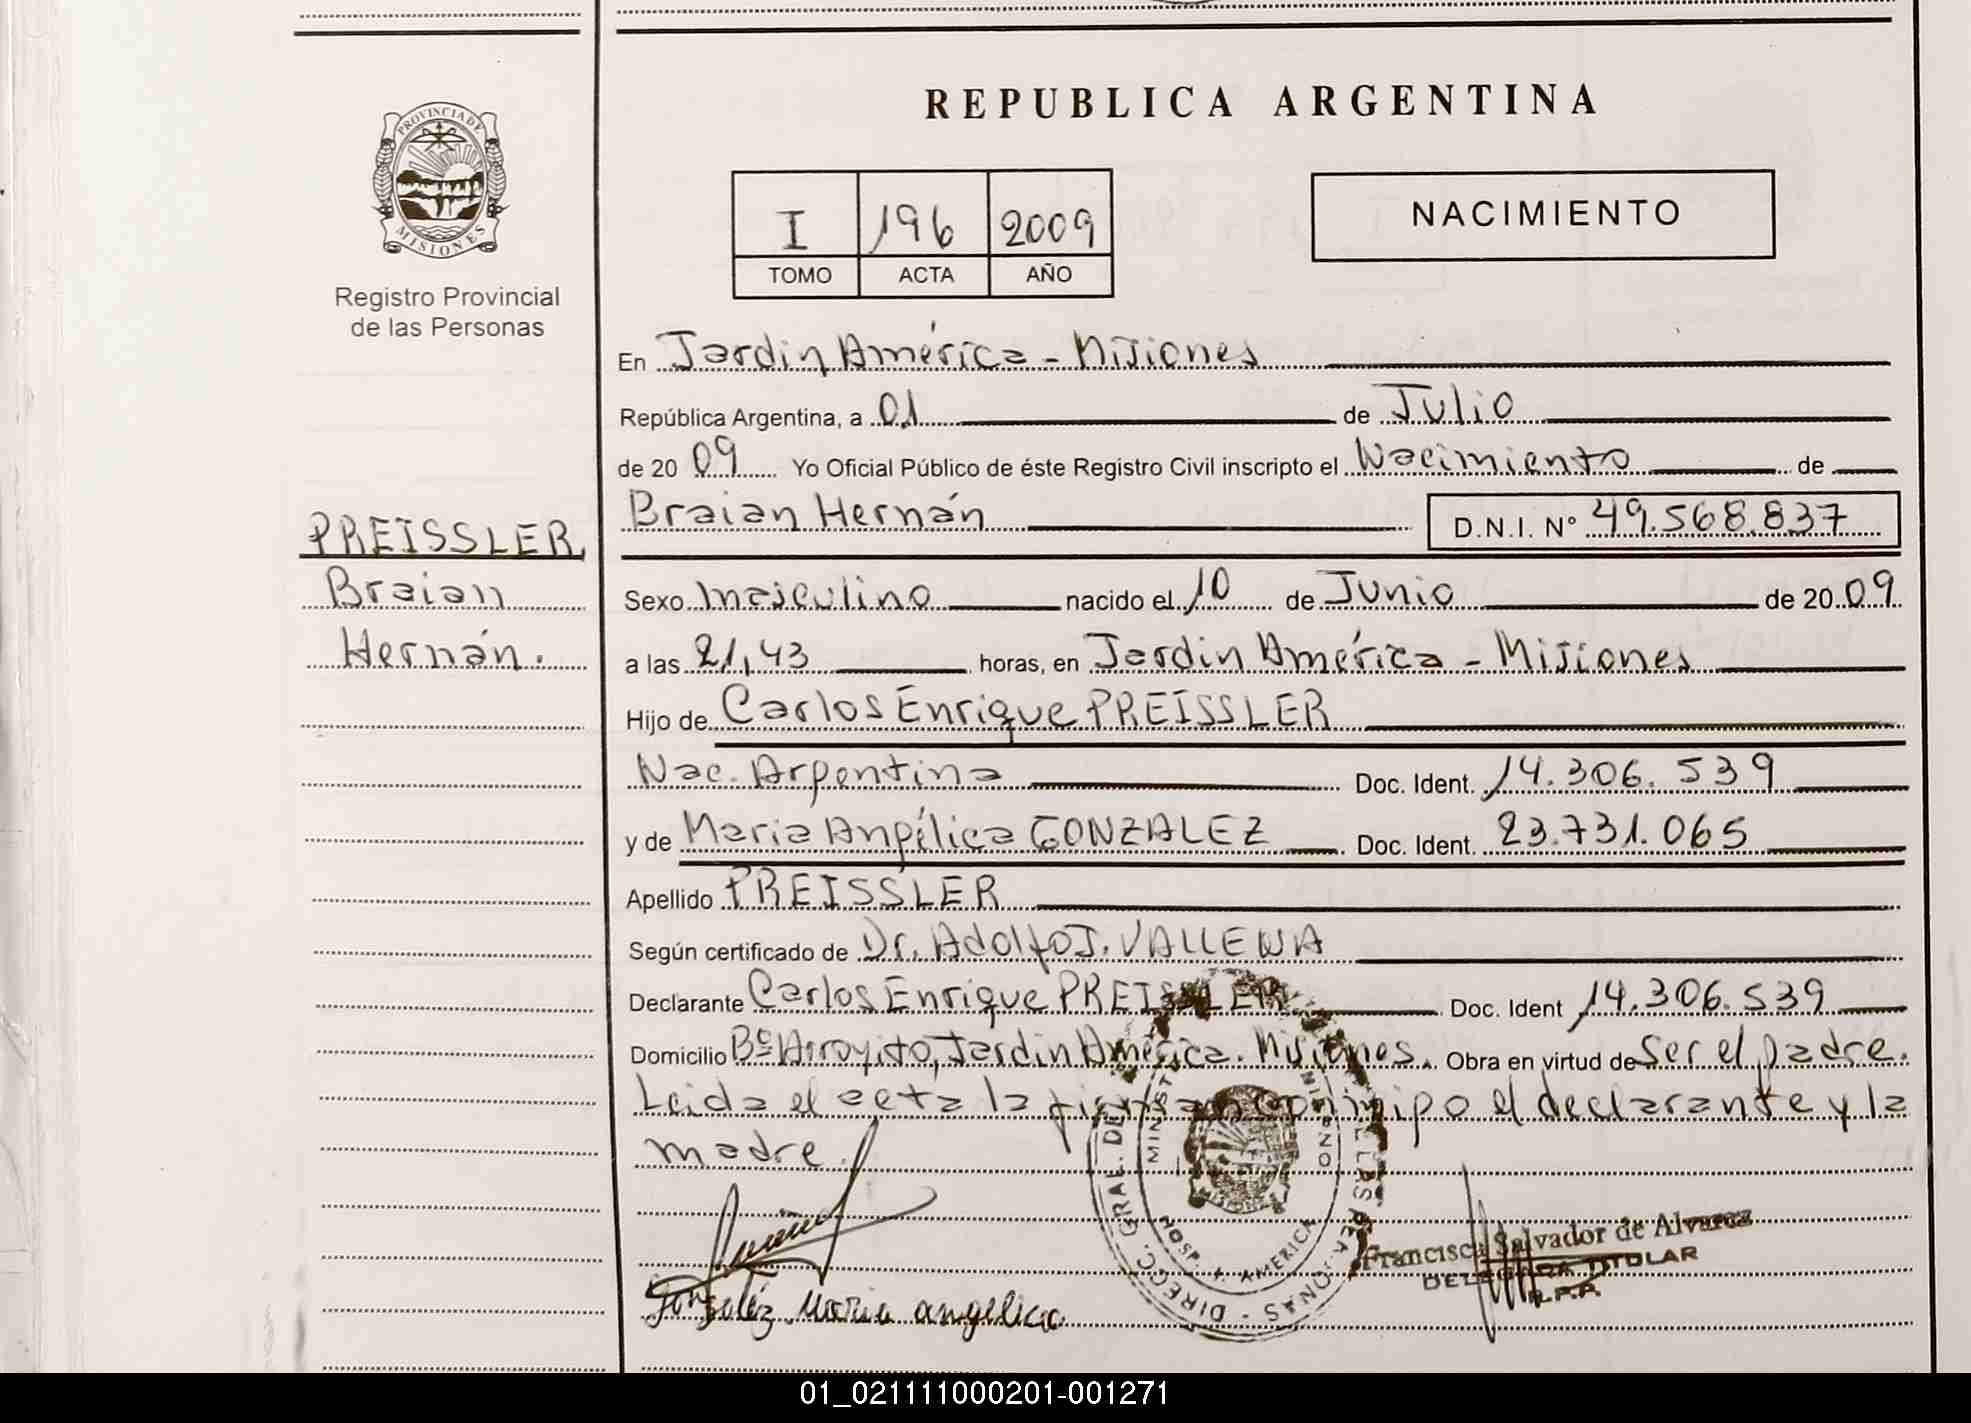 REPUBLICA ARGENTINA
PROVINCIA DE
MISIONES
Registro Provincial
de las Personas
I 196 2009
TOMO ACTA AÑO
NACIMIENTO
En Jardin América - Misiones
República Argentina, a 01 de Julio
de 2009 Yo Oficial Público de éste Registro Civil inscripto el Nacimiento de
Braian Hernán D.N.I. Nº 49.568.837
PREISSLER
Braian
Hernán.
Sexo masculino nacido el 10 de Junio de 2009
a las 21,43 horas, en Jardin América - Misiones
Hijo de Carlos Enrique PREISSLER
Nac. Argentina Doc. Ident. 14.306.539
y de Maria Angélica GONZALEZ Doc. Ident. 23.731.065
Apellido PREISSLER
Según certificado de Dr. Adolfo J. VALLEWA
Declarante Carlos Enrique PREISSLER Doc. Ident 14.306.539
Domicilio Bº Arroyito, Jardin América. Misiones. Obra en virtud de Ser el padre.
Leida el acta la firman conmigo el declarante y la
madre.
DIRECC. GRAL. DE LAS PERSONAS
AMERICA
Francisca Salvador de Alvarez
DELEGADA TITULAR
R.P.P.
Gonzaléz Maria angelica
01_021111000201-001271